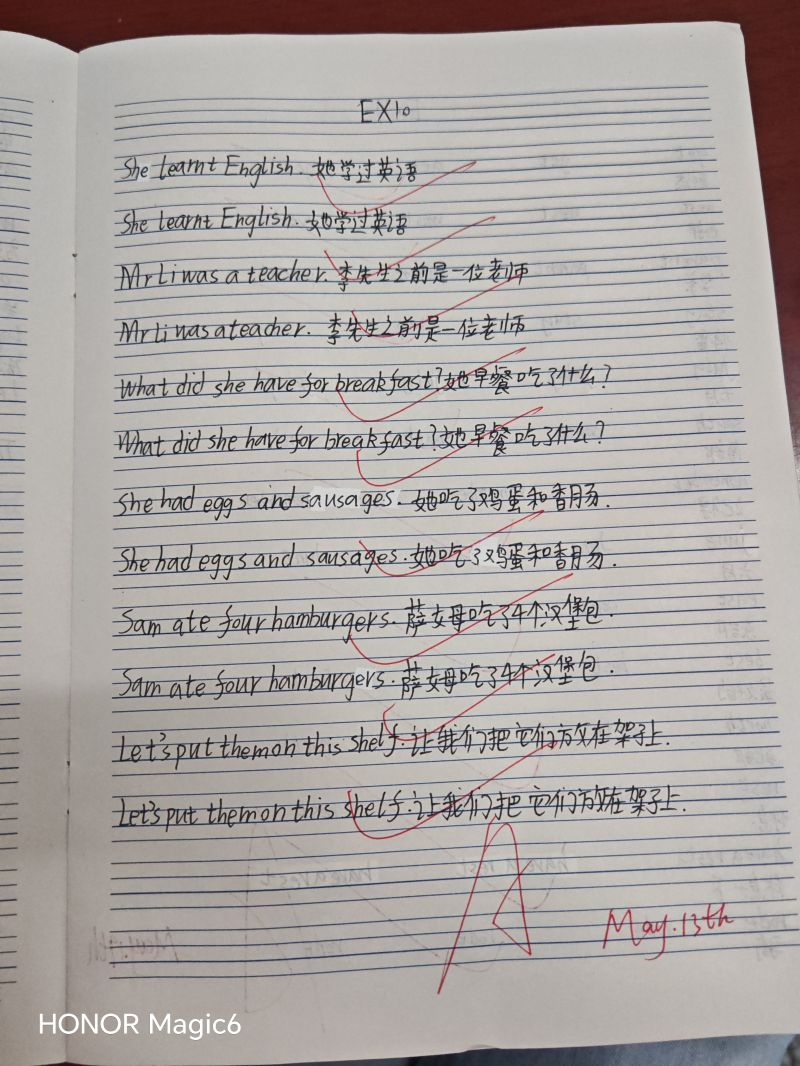 EX10
She learnt English. 她学过英语
She learnt English. 她学过英语
Mr Li was a teacher. 李先生之前是一位老师
Mr Li was a teacher. 李先生之前是一位老师
What did she have for breakfast? 她早餐吃了什么?
What did she have for breakfast? 她早餐吃了什么?
She had eggs and sausages. 她吃了鸡蛋和香肠.
She had eggs and sausages. 她吃了鸡蛋和香肠.
Sam ate four hamburgers. 萨姆吃了4个汉堡包.
Sam ate four hamburgers. 萨姆吃了4个汉堡包.
Let's put them on this shelf. 让我们把它们放在架子上.
Let's put them on this shelf. 让我们把它们放在架子上.
A
May. 13th
HONOR Magic6